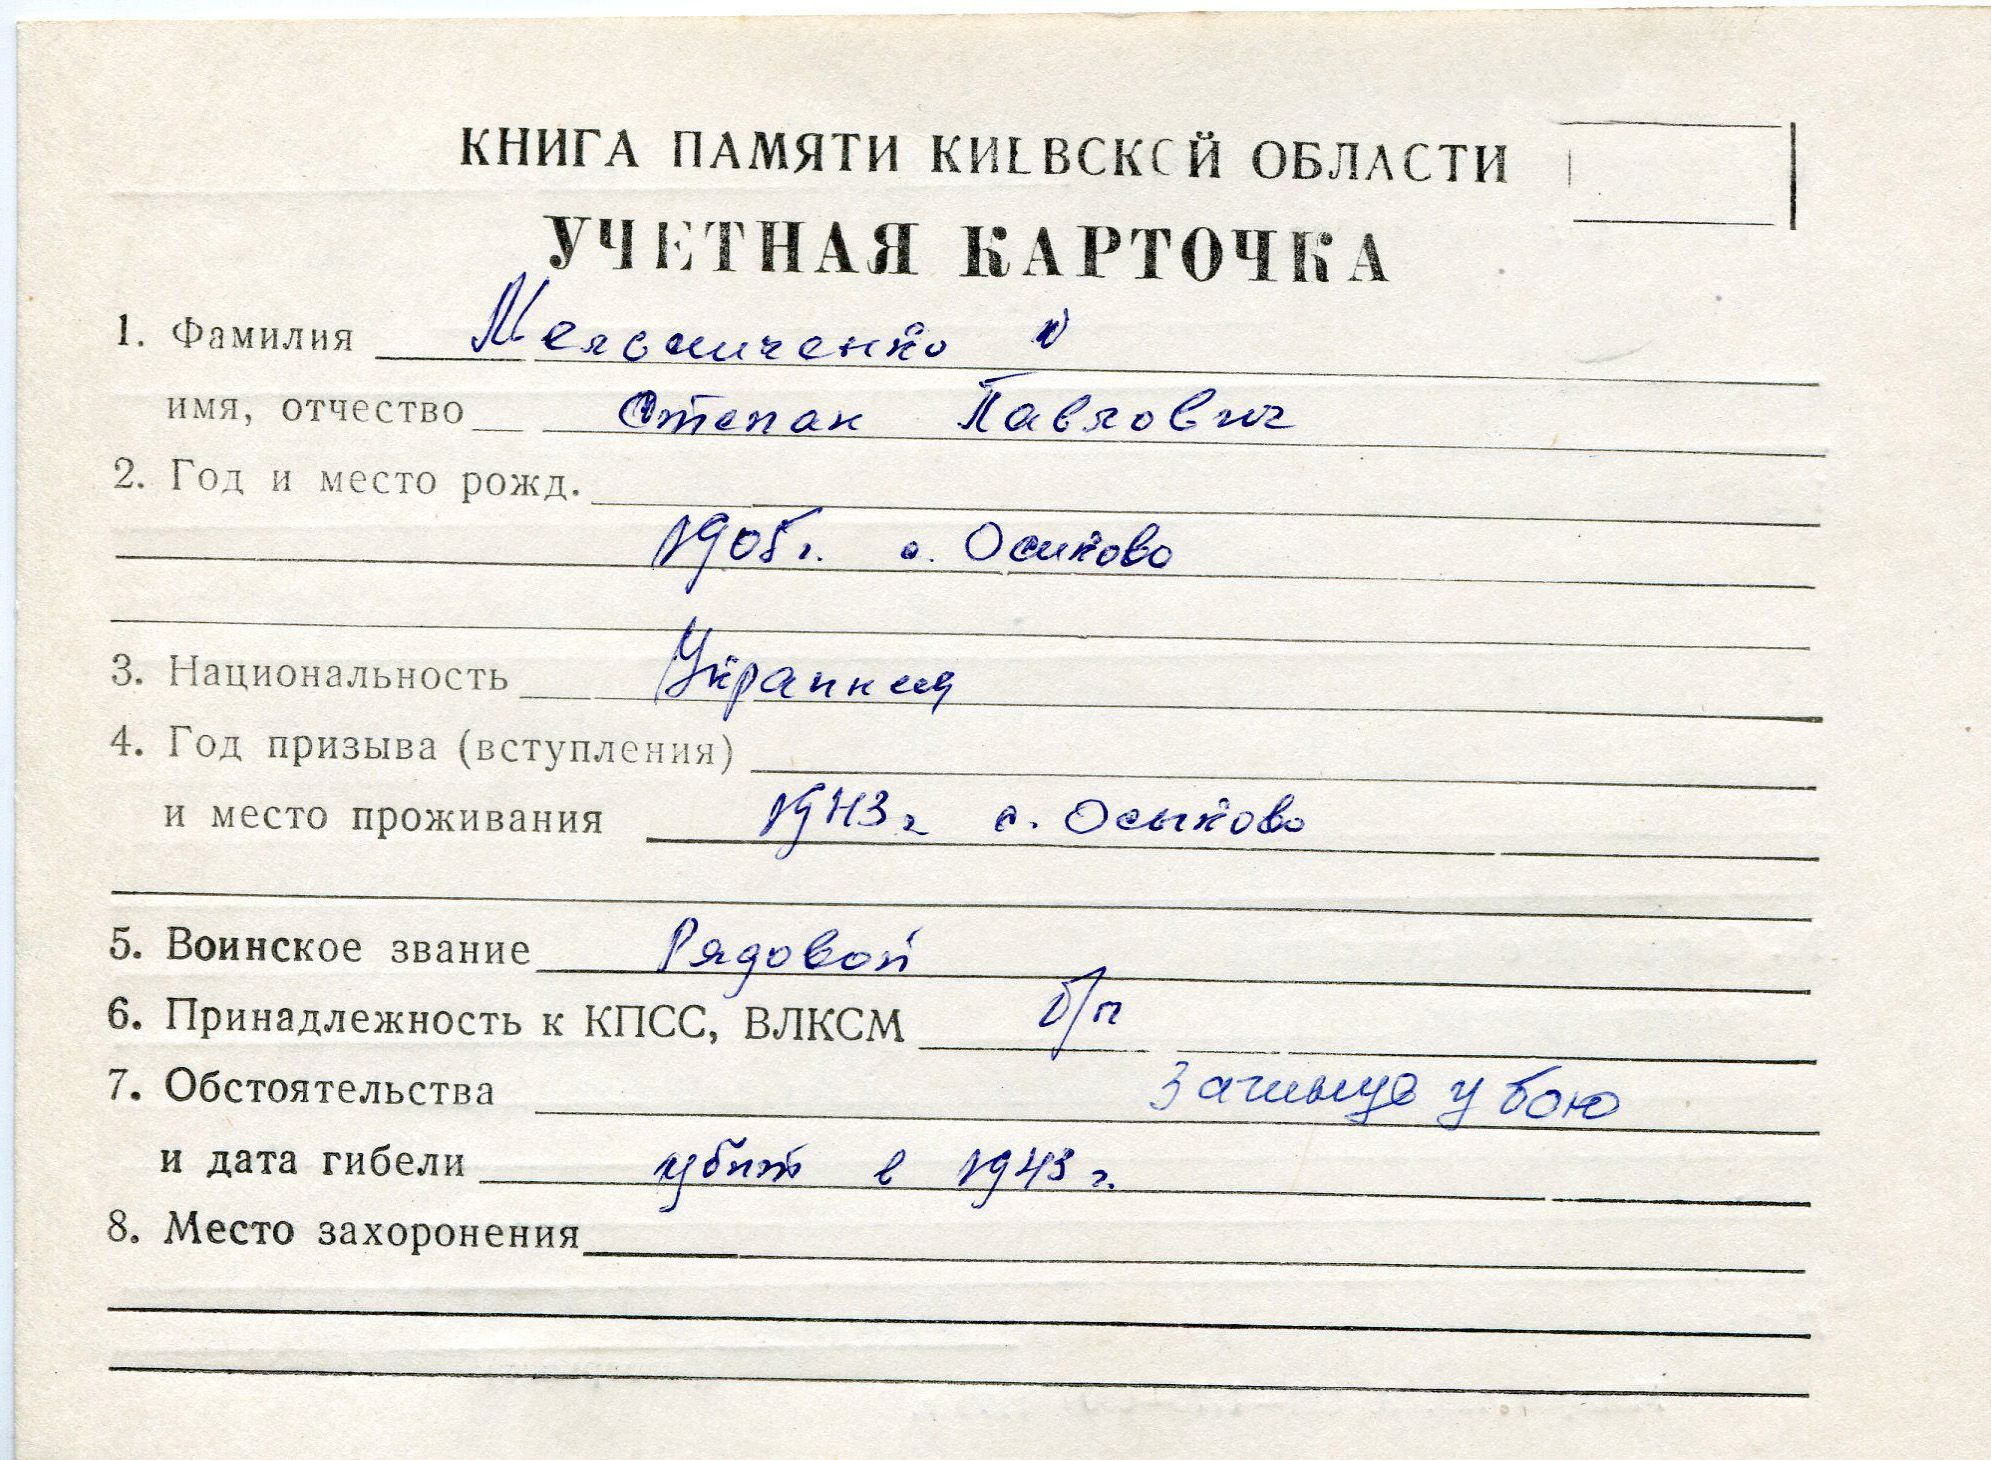 КНИГА ПАМЯТИ КИЕВСКОЙ ОБЛАСТИ
УЧЕТНАЯ КАРТОЧКА
1. Фамилия Мельниченко
имя, отчество Степан Павлович
2. Год и место рожд.
1905г. с. Осиково
3. Национальность Украинец
4. Год призыва (вступления)
и место проживания 1943г с. Осыково
5. Воинское звание Рядовой
6. Принадлежность к КПСС, ВЛКСМ б/п
7. Обстоятельства загинув у бою
и дата гибели убит в 1943 г.
8. Место захоронения